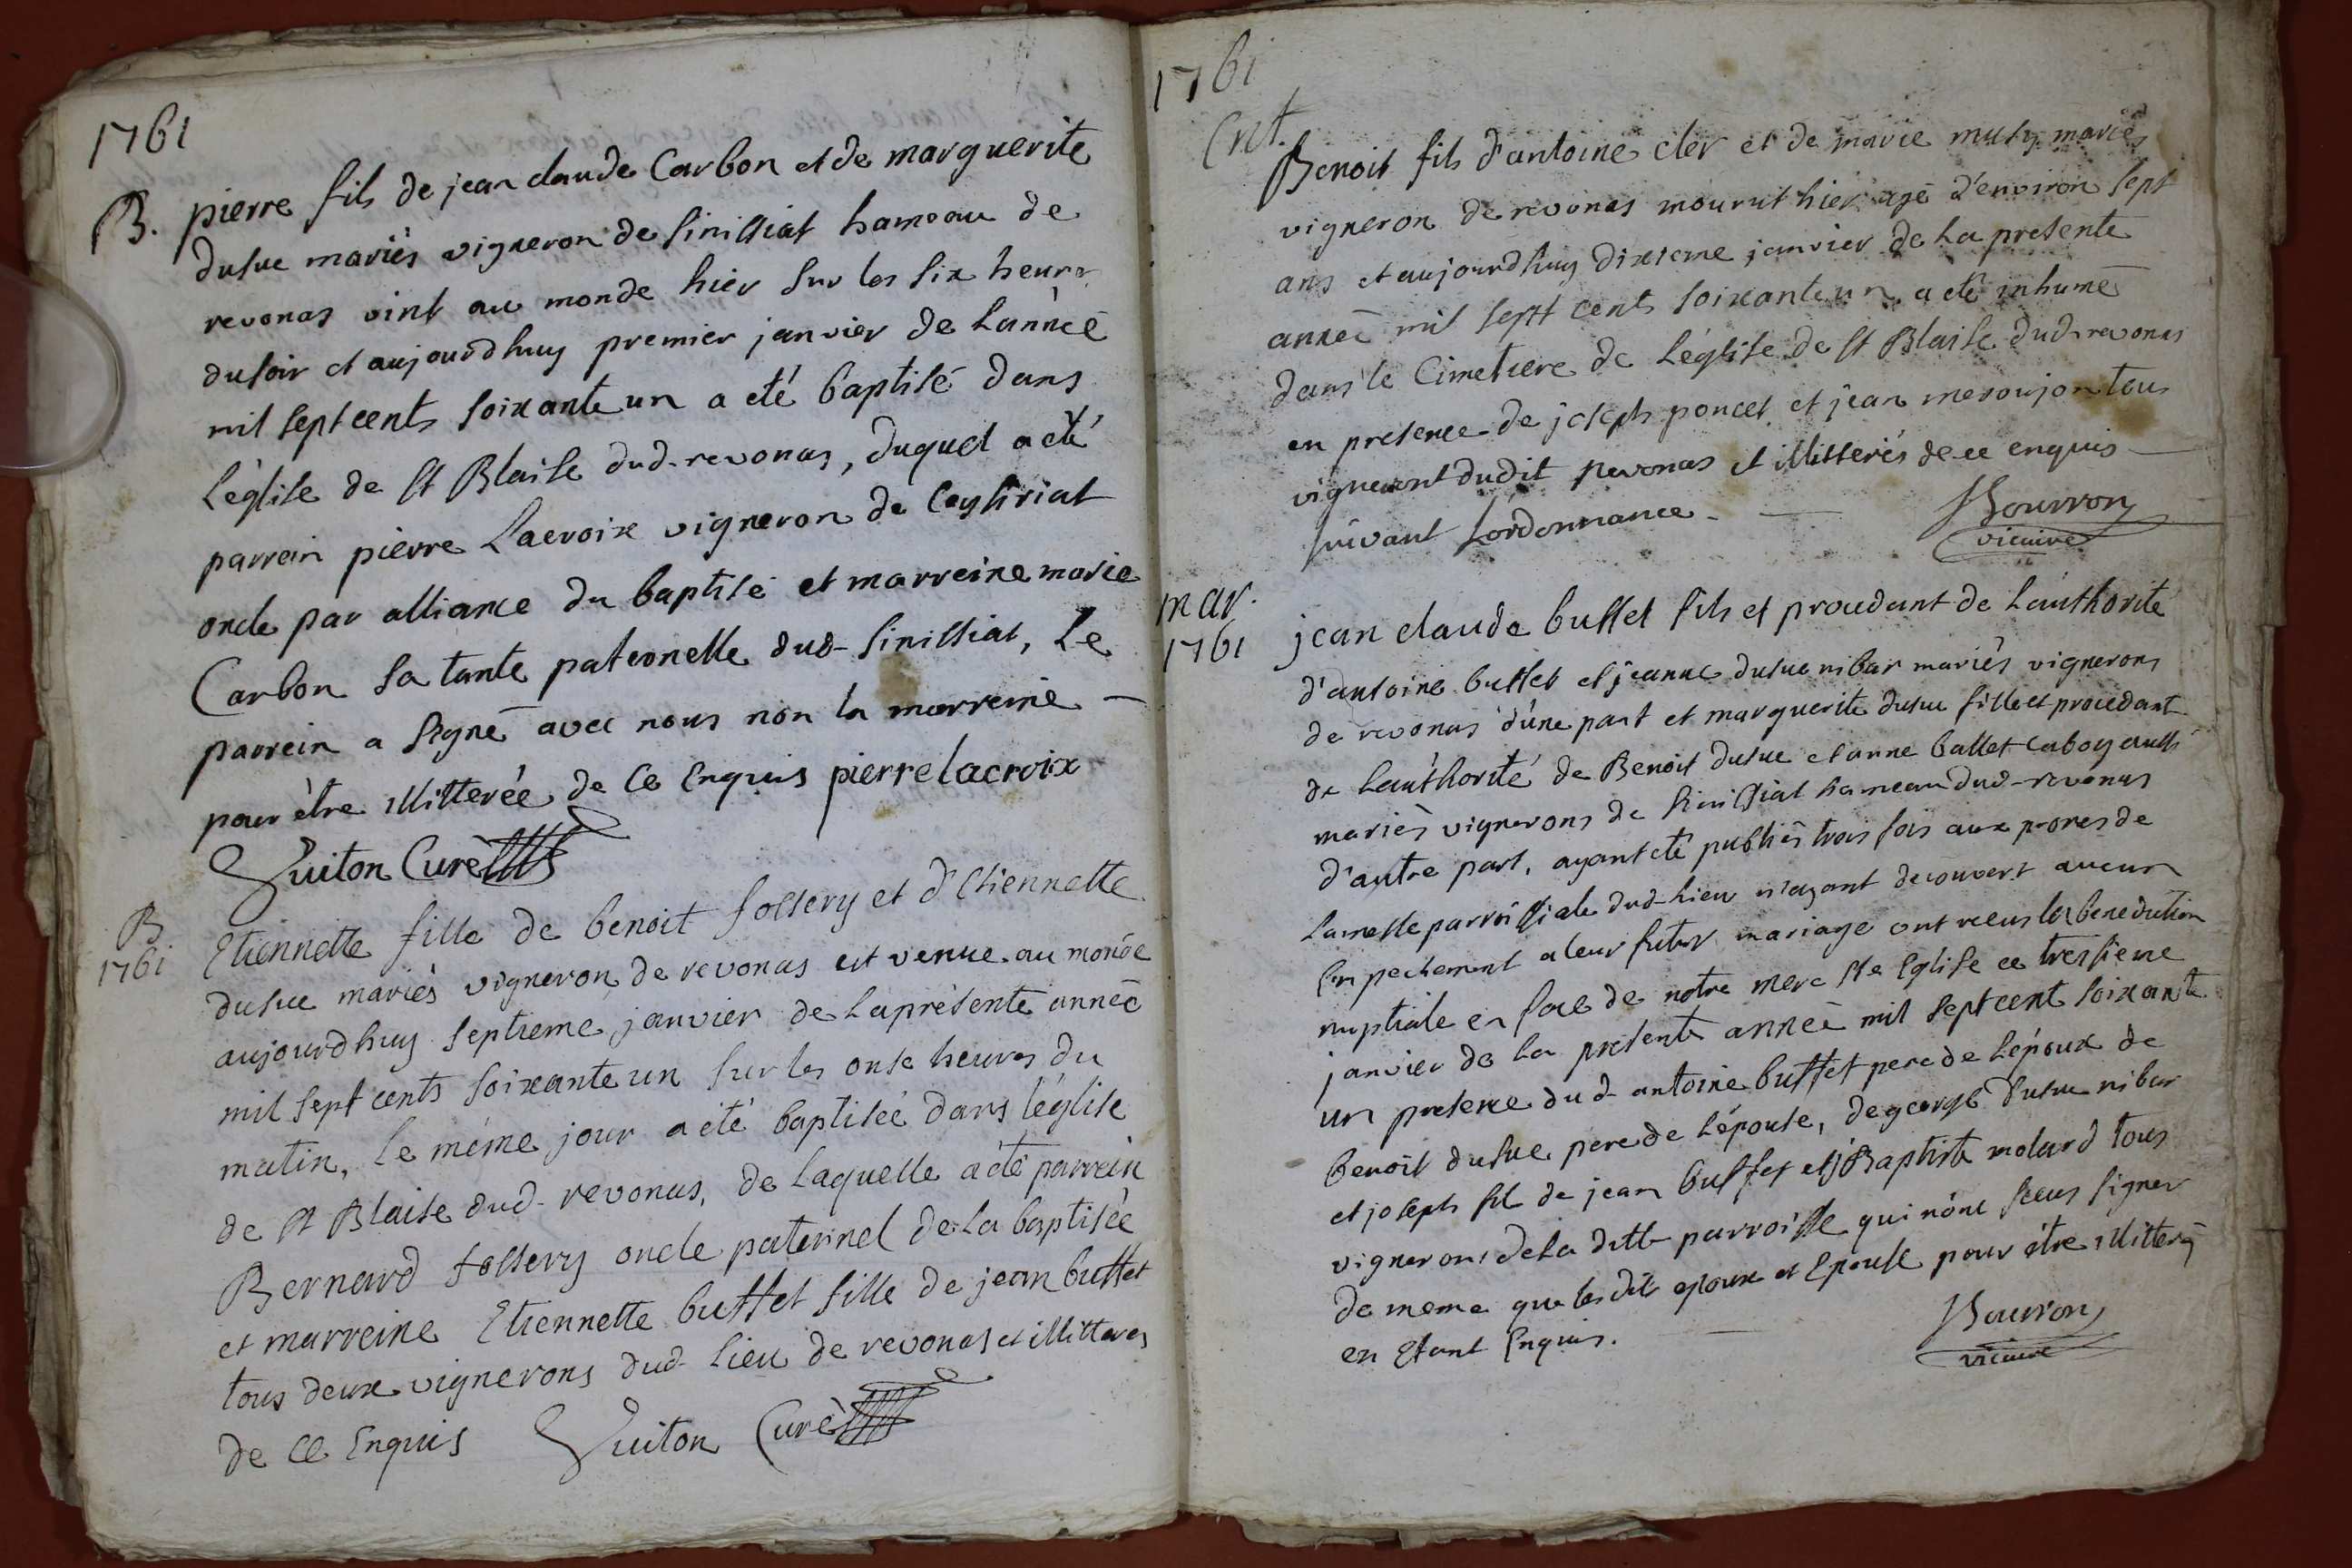 1761
B. pierre fils de jean claude Carbon et de marguerite
dusue mariés vigneron de Sinissiat hameau de
revonas vint au monde hier sur les six heures
dusoir et aujourdhuy premier janvier de Lannéé
mil septcents soixante un a eté baptisé dans
Léglise de st Blaise dud-revonas, duquel a eté
parrein pierre Lacroix vigneron de Ceyseriat
oncle par alliance du baptisé et marreine marie
Carbon sa tante paternelle dud-Sinissiat, Le
parrein a signé avec nous non la marreine —
pour être illitterée de Ce Enquis pierre lacroix
Guiton Curé
B
1761
Etiennette fille de benoit follery et d'Etiennette
dusue mariés vigneron de revonas est venue au monde
aujourdhuy septieme janvier de Laprésente annéé
mil sept cents soixante un sur les onse heures du
matin, Le même jour a eté baptiséé dans l'église
de st Blaise dud-revonas, de Laquelle a eté parrein
Bernard follery oncle paternel de La baptiséé
et marreine Etiennette buffet fille de jean buffet
tous deux vignerons dud-Lieu de revonas et illitteres
de Ce Enquis Guiton Curé
1761
Ent.
Benoit fils d'antoine cler et de marie muty mariés
vigneron de revonas mourut hier agé d'environ sept
ans et aujourdhuy dixieme janvier de La presente
annéé mil sept cents soixante un a eté inhumé
dans le Cimetiere de Léglise de st Blaise dud-revonas
en presence de joseph poncet et jean mesoujon tous
vigneront dudit revonas et illitterés de ce enquis —
suivant Lordonnance. — Bourron
vicaire
mar.
1761
jean claude buffet fils et procedant de Lauthorité
d'antoine buffet et jeanne dusue nibar mariés vignerons
de revonas d'une part et marguerite dusue fille et procedant
de Lauthorité de Benoit dusue et anne ballet caboy aussi
mariés vignerons de Sinissiat hameau dud-revonas
d'autre part, ayant eté publiés trois fois aux prones de
Lamesse parroissiale dud-Lieu n'ayant decouvert aucun
Enpechement a leur futur mariage ont receus la benediction
nuptiale en face de notre mere ste Eglise ce tresieme
janvier de La presente annéé mil septcent soixante
un presence dud-antoine buffet pere de L'époux de
benoit dusue pere de L'épouse, de george dusue nibar
et joseph fil de jean buffet et j Baptiste molard tous
vignerons de La ditte parroisse qui nont sceus signer
de meme que les dits epoux et Epouse pour être illitterés
en Etant Enquis. — Bourron
vicaire